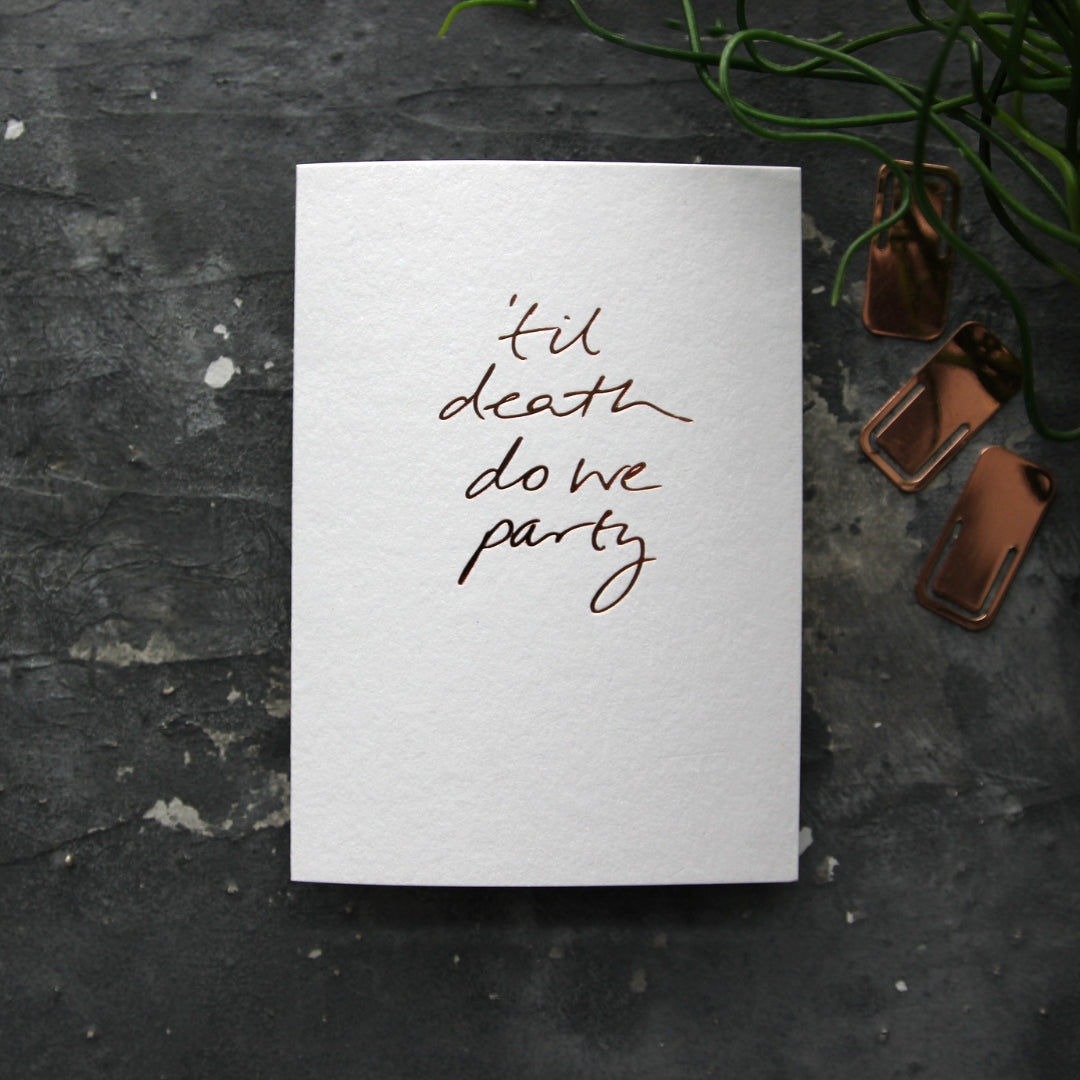 'til
death
do we
party